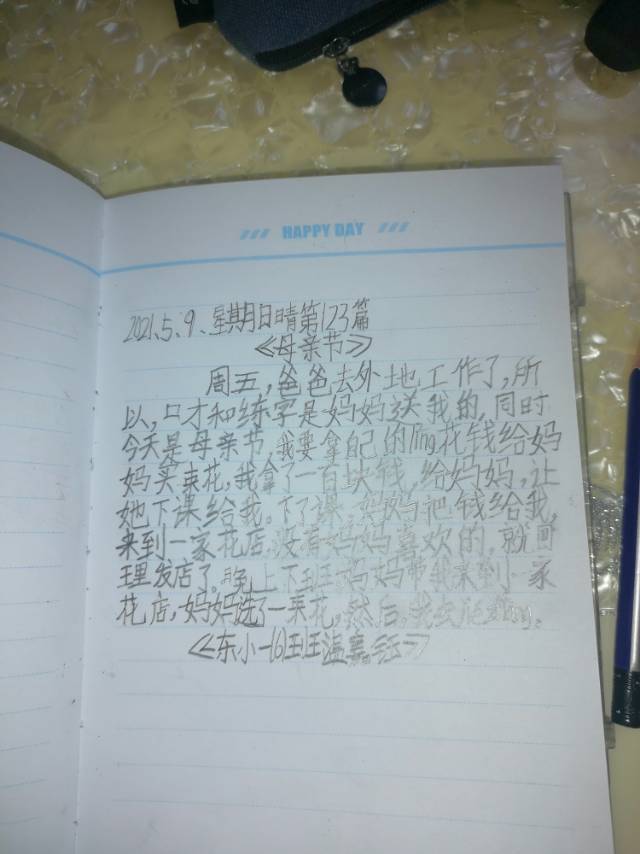 HAPPY DAY
2021.5.9.星期日晴第123篇
《母亲节》
周五,爸爸去外地工作了,所
以,口才和练字是妈妈送我的,同时
今天是母亲节,我要拿自己的ling花钱给妈
妈买束花,我拿了一百块钱,给妈妈,让
她下课给我。下了课,妈妈把钱给我,
来到一家花店,没有妈妈喜欢的,就回
理发店了,晚上下班妈妈带我来到一家
花店,妈妈选了一束花,然后,我去
《东小一(6)班温嘉